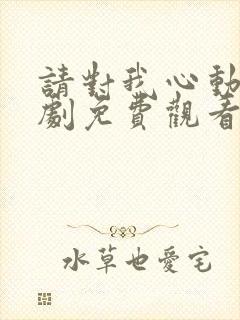 請對我心動
劇免費觀看
水草也愛宅